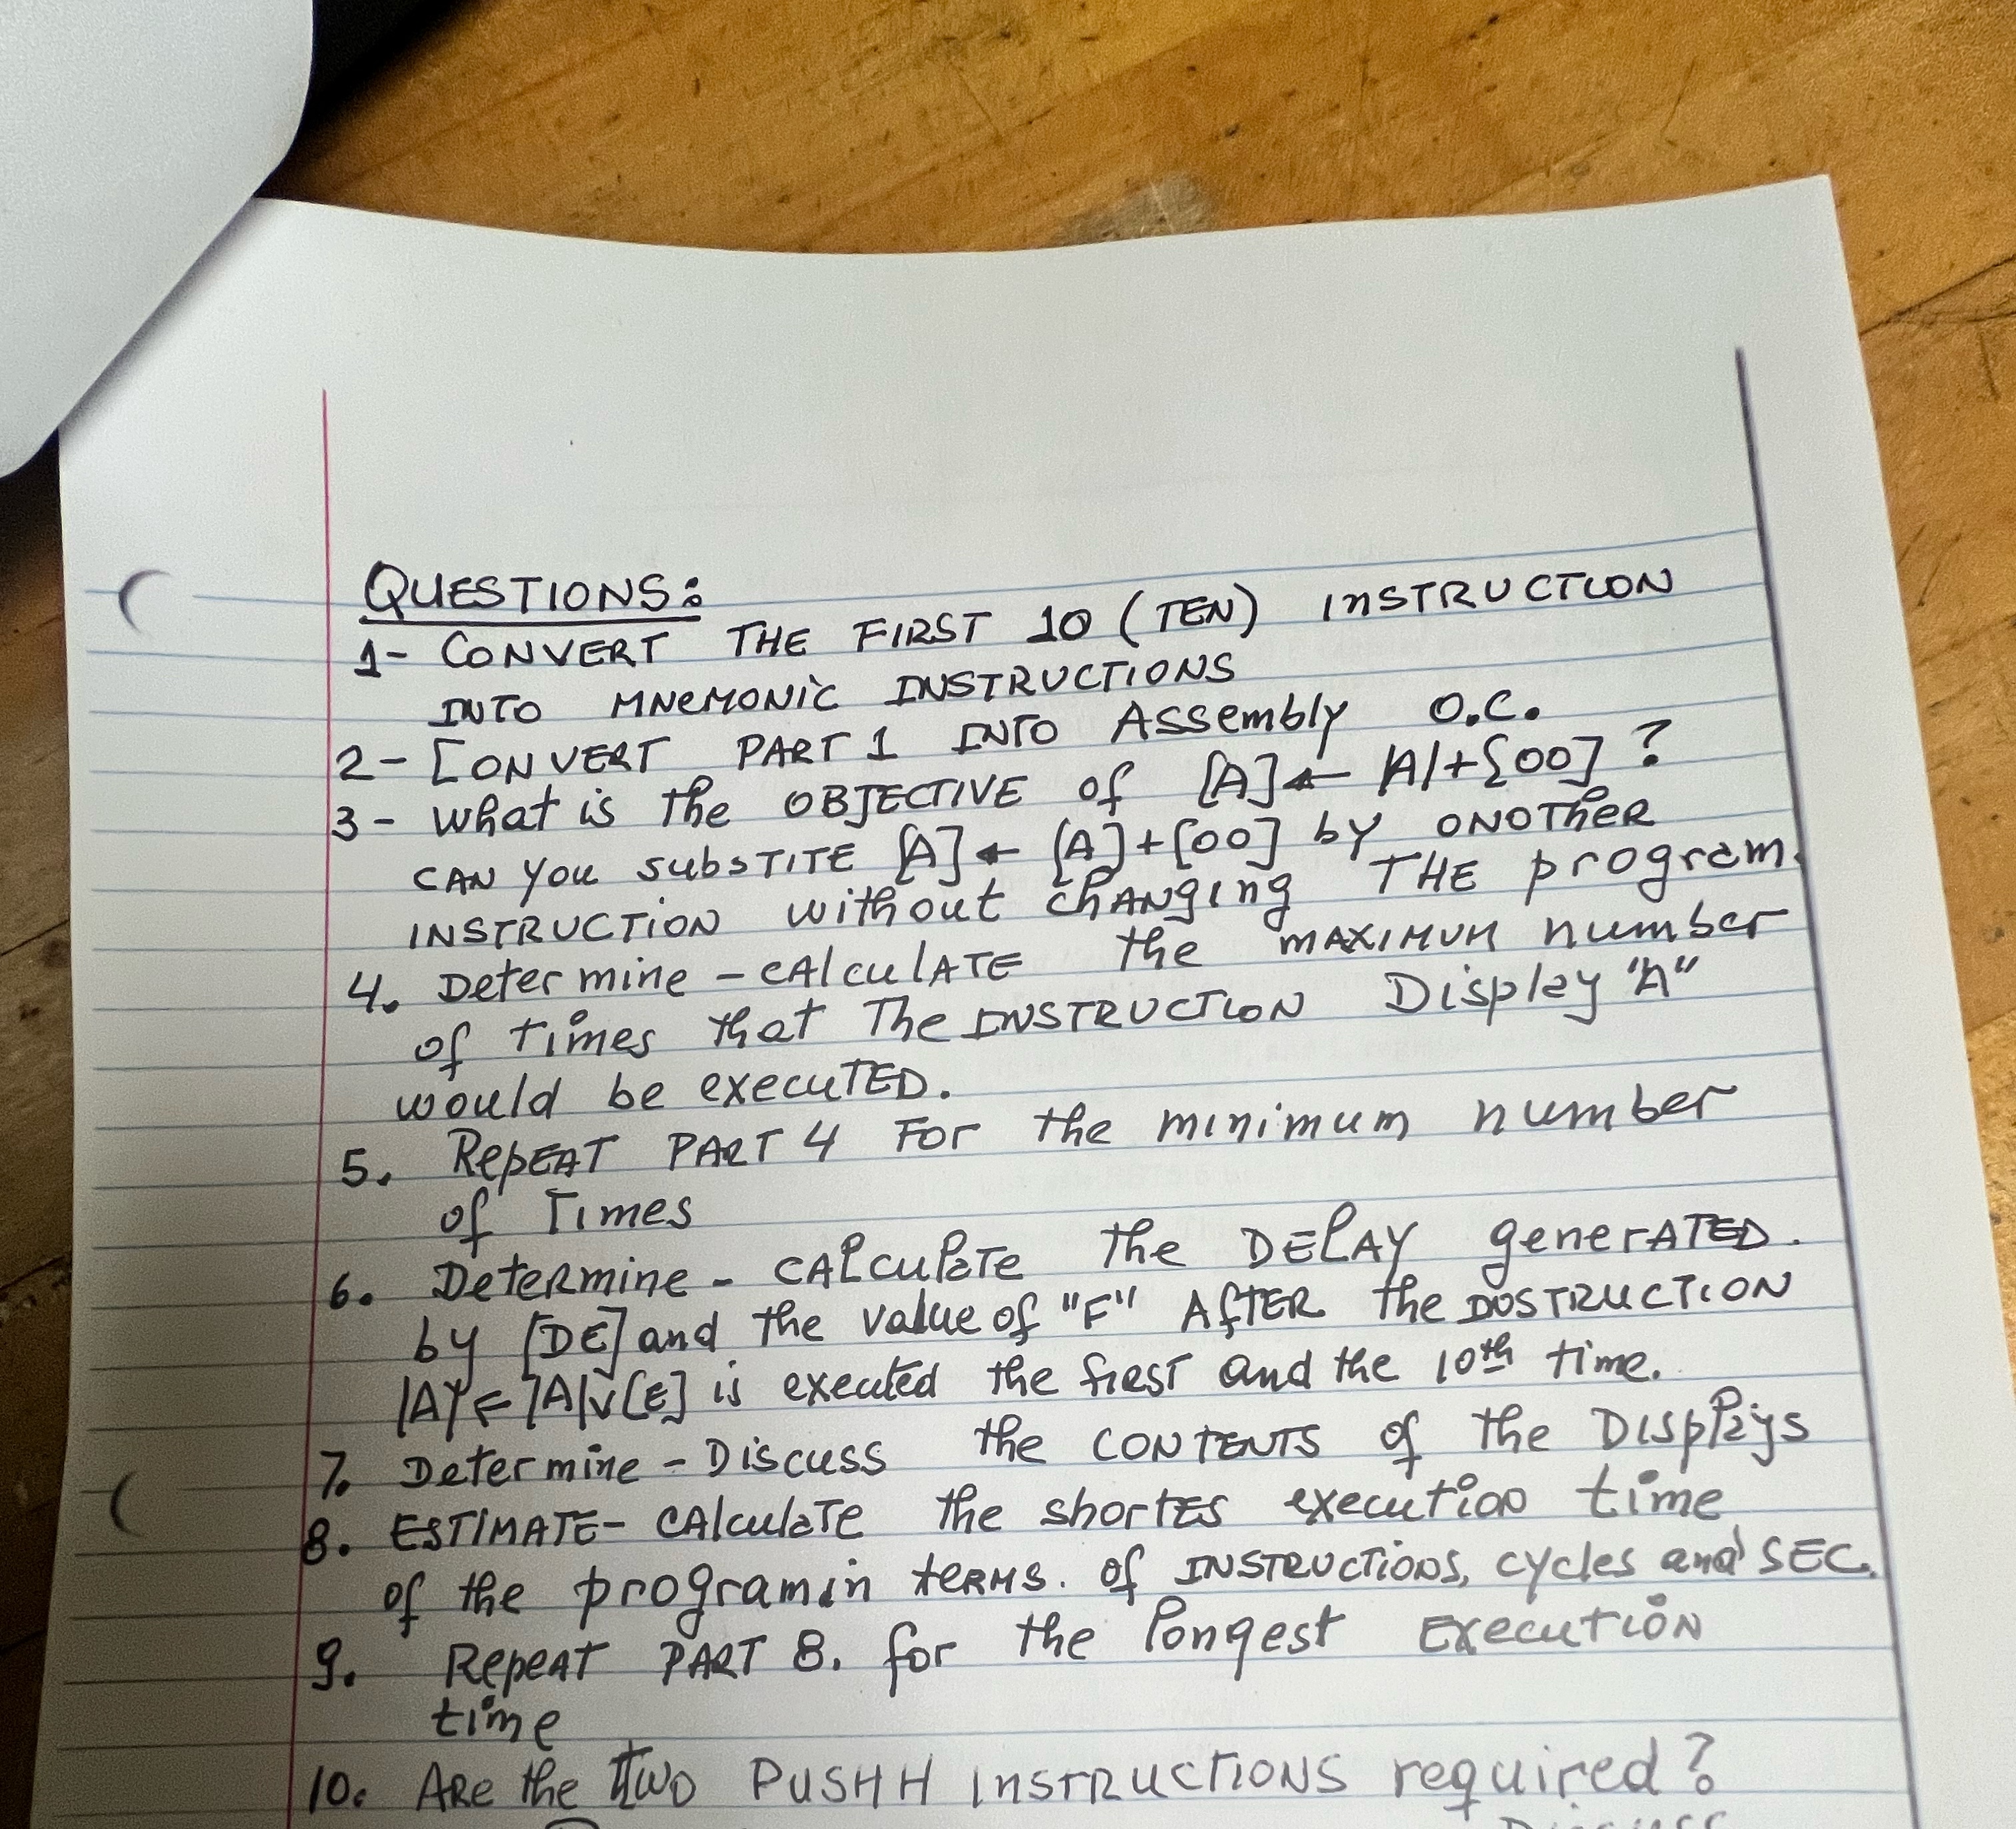 QUESTIONS:
1- CONVERT THE FIRST 10 (TEN) INSTRUCTION
INTO MNEMONIC INSTRUCTIONS
2- CONVERT PART 1 INTO Assembly O.C.
3- What is the OBJECTIVE of [A]← |A|+[00] ?
CAN You subSTITE [A]← [A]+[00] by ONOTHER
INSTRUCTION without changing THE program.
4. Determine - CAlculATE the MAXIMUM number
of times that The INSTRUCTION Display "A"
would be execuTED.
5. RepEAT PART 4 For the minimum number
of Times
6. Determine - CALculaTe the DELAY generATED.
by [DE] and the value of "F" AfTER the INSTRUCTION
|A| ← |A|v[E] is executed the first and the 10th time.
7. Determine - Discuss the CONTENTS of the Displays
8. ESTIMATE- CAlculaTe the shortEs execution time
of the programin teRMS. of INSTRUCTIONS, cycles and SEC.
9. Repeat PART 8. for the longest Execution
time
10. ARe the TWO PUSH H INSTRUCTIONS required?
Discuss